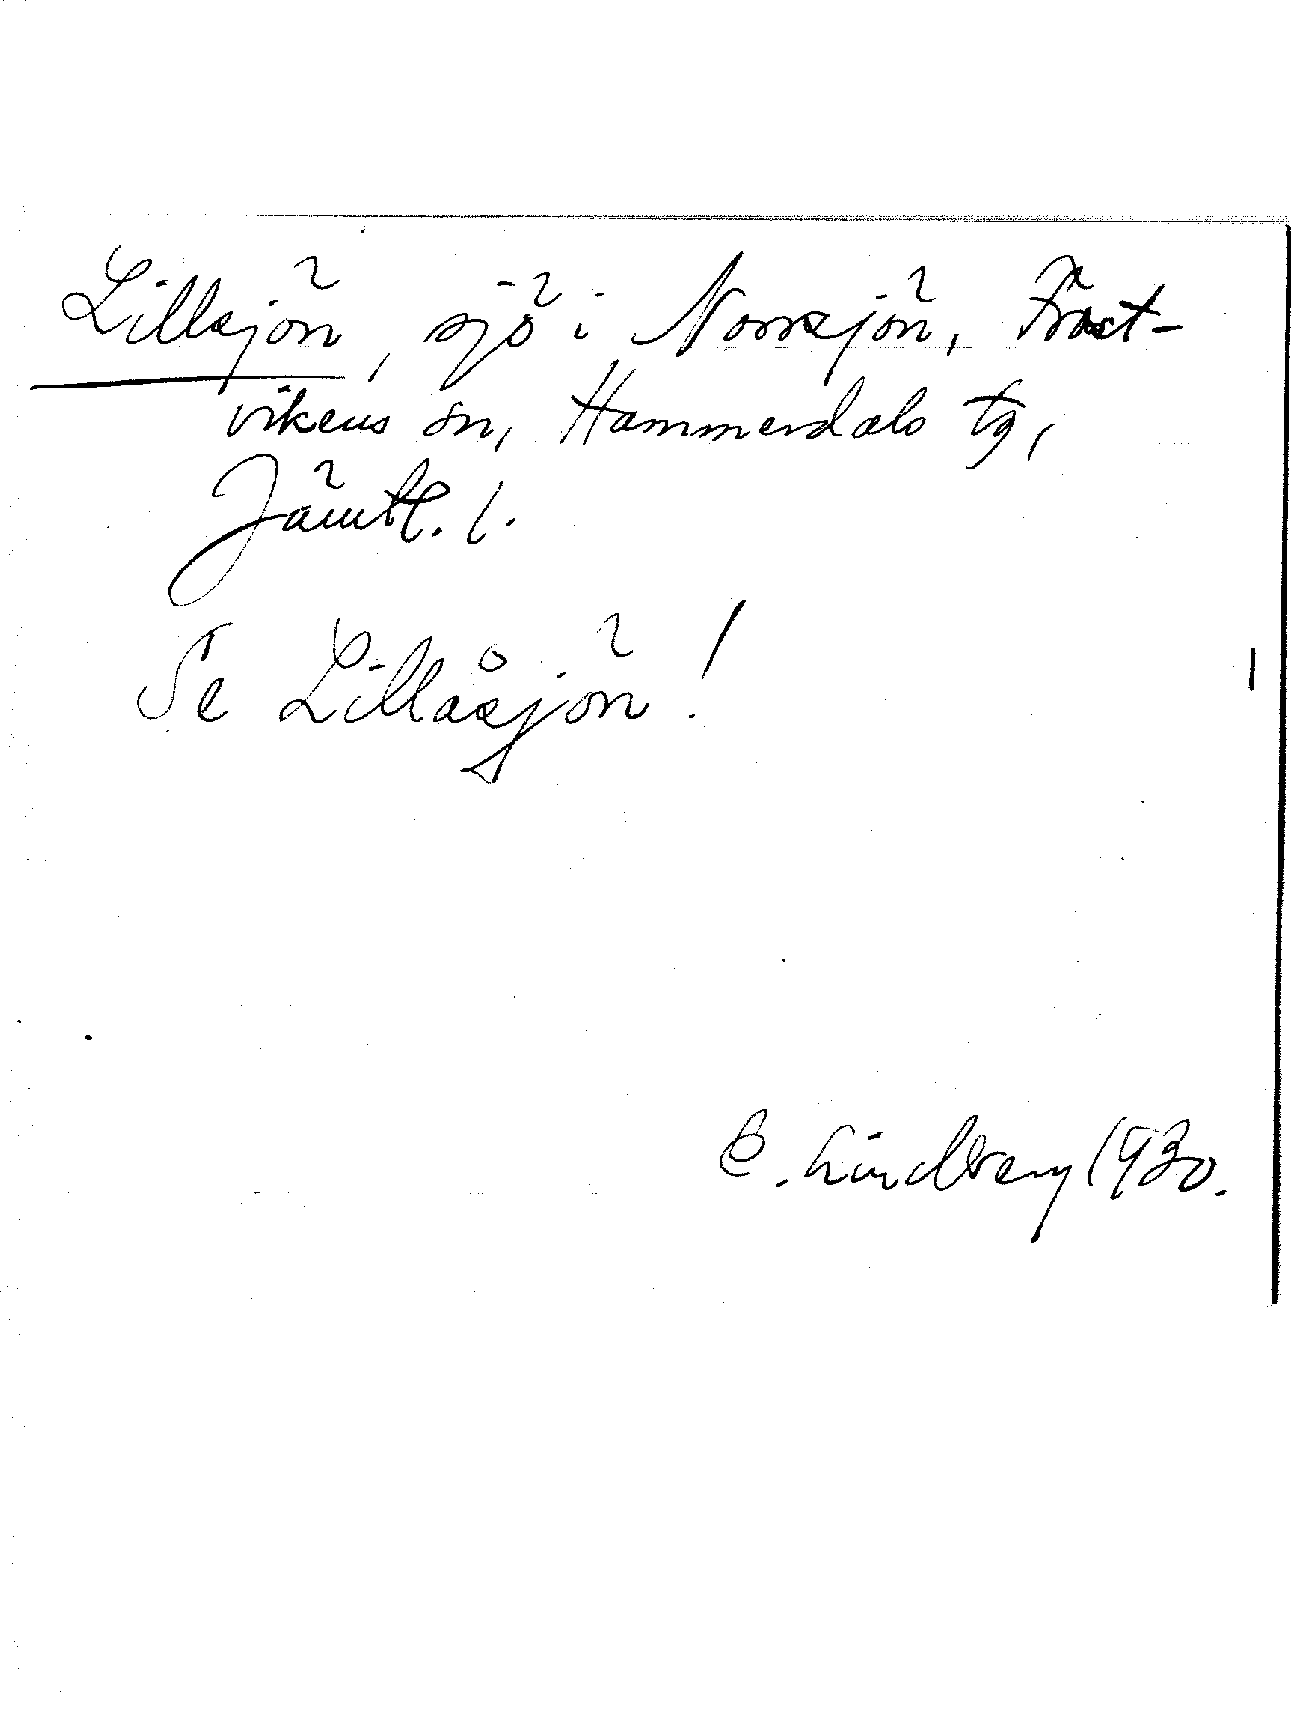 Lillsjön, sjö i Norrsjön, Frost-
vikens sn, Hammerdals tg,
Jämtl. l.
Se Lillåsjön!
C. Lindberg 1930.